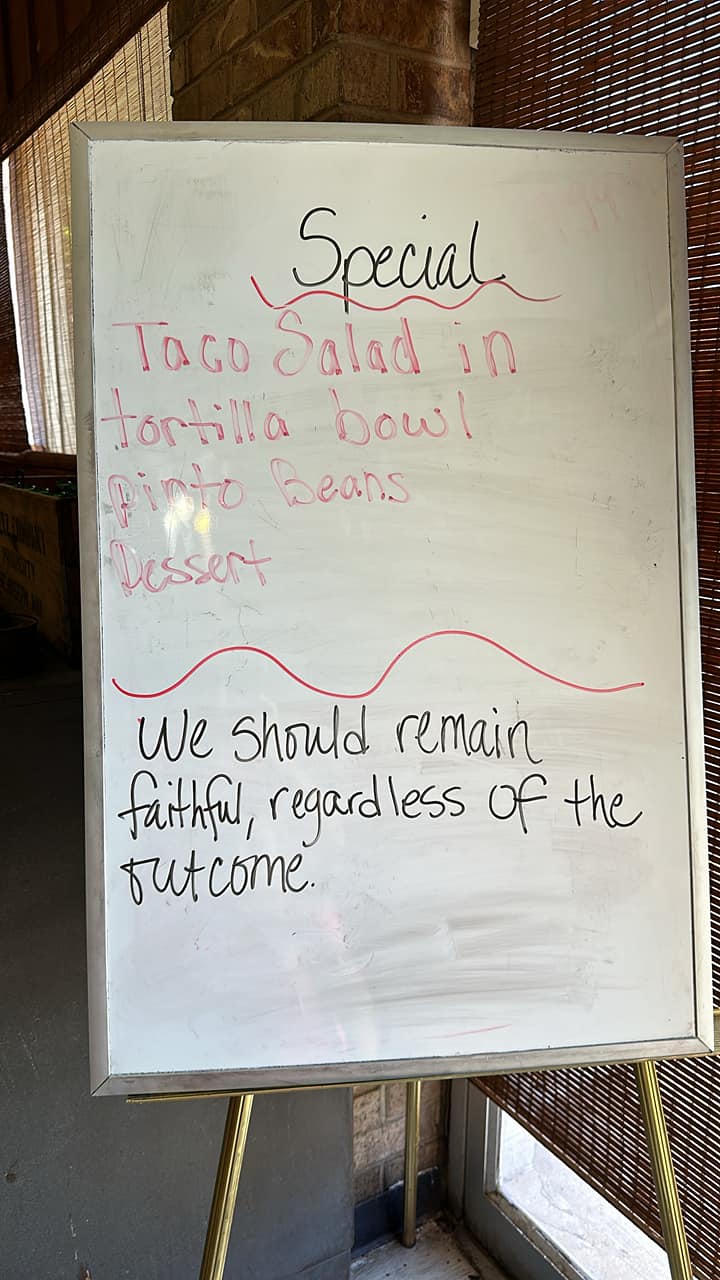 Special
Taco Salad in
tortilla bowl
pinto Beans
Dessert
We should remain
faithful, regardless of the
outcome.